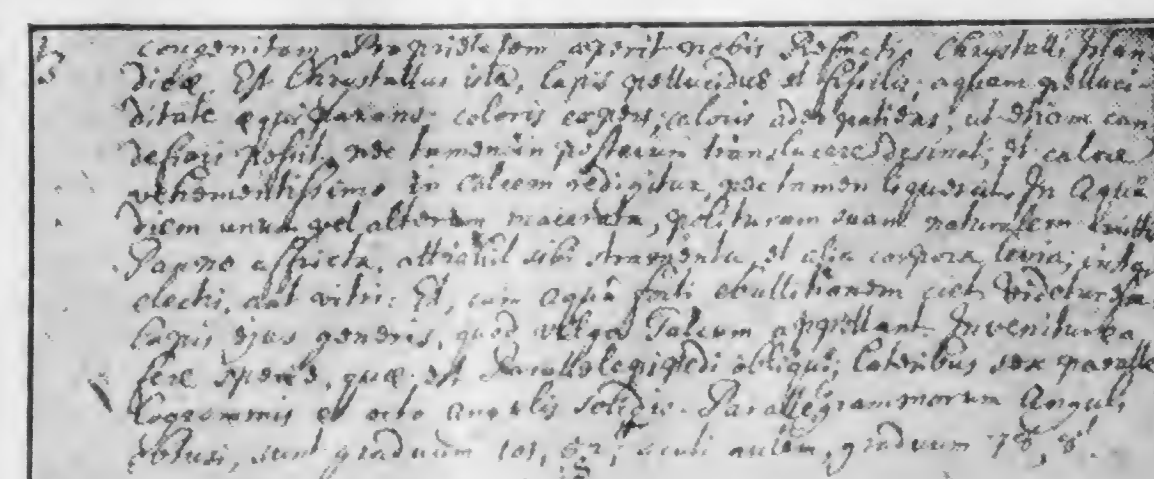 congenitam Proprietatem aperit nobis Refractio Chrystalli Islan-
dicæ. Est Chrystallus ista, lapis pellucidus et fissilis; aquam pelluci-
ditate æquiparans coloris expers; caloris adeo patiens, ut etiam can-
defieri possit, nec tamen in posterum translucere desinat; et calore
vehementissimo in calcem redigitur, nec tamen liquescit. In Aqua
diem unum vel alterum macerata, polituram suam naturalem amittit
Panno affricta, attrahit sibi stramenta, et alia corpora levia; instar
electri, aut vitri: Et, cum aqua forti ebullitionem ciet. Videtur esse
Lapis ejus generis, quod vulgo Talcum appellant. Invenitur ea
fere specie, quæ est Parallelepipedi obliqui; lateribus sex paralle-
logrammis et octo angulis solidis. Parallelogrammorum Anguli
obtusi, sunt graduum 101, 52'; acuti autem, graduum 78, 8'.